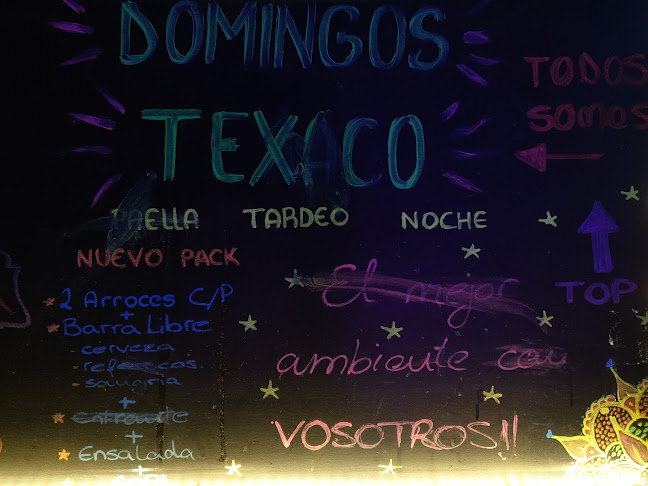 DOMINGOS
TEXACO
TODOS
somos
PAELLA TARDEO NOCHE
TOP
NUEVO PACK
2 Arroces C/P
+
Barra Libre
- cerveza
- refrescos
- sangría
+
+
Ensalada
+
El mejor
ambiente con
VOSOTROS!!